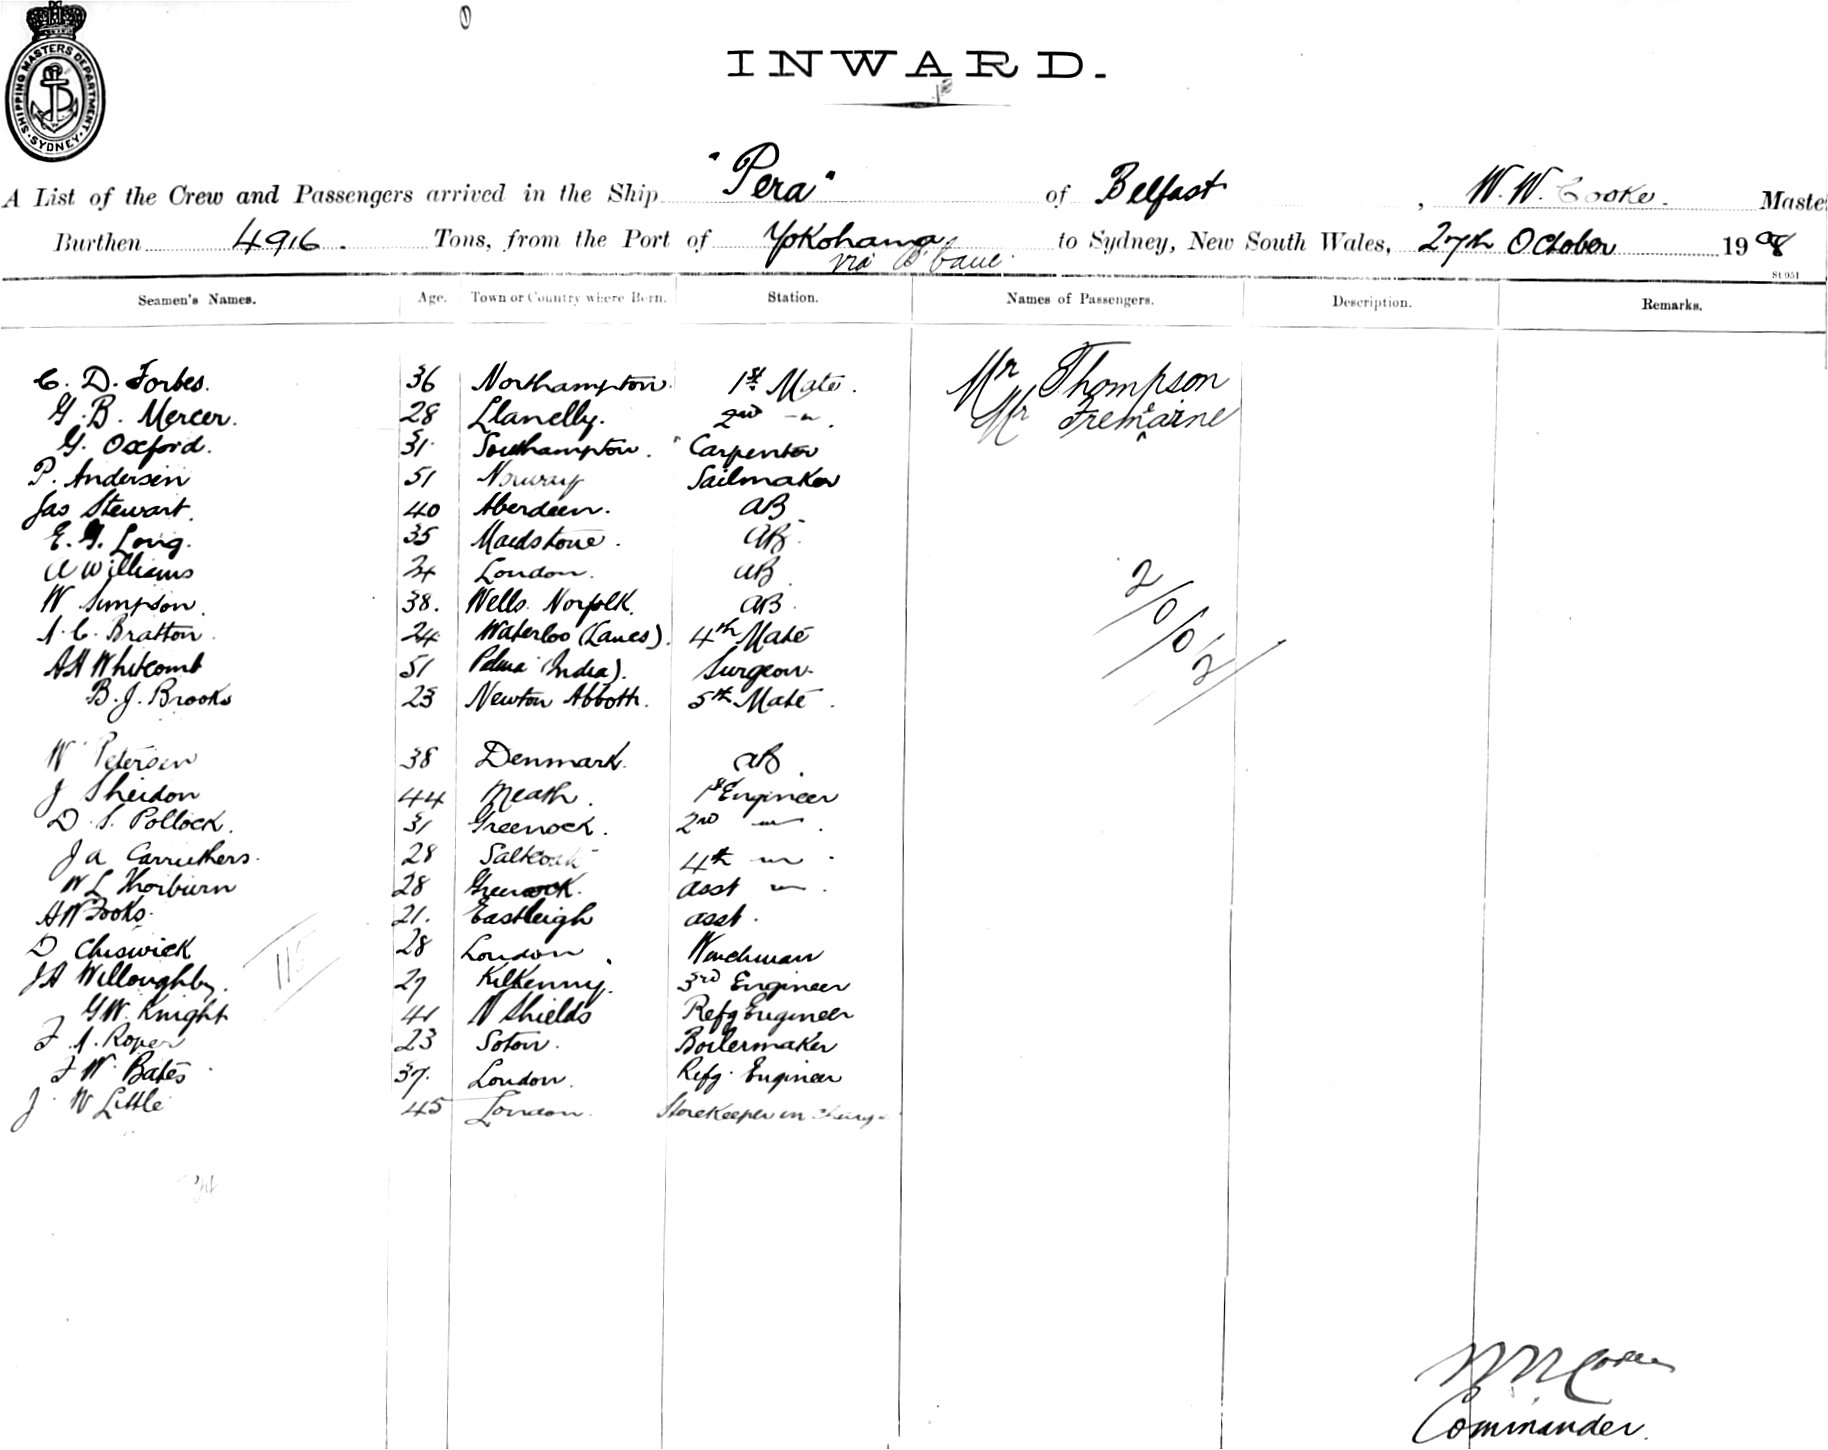 SHIPPING MASTERS DEPARTMENT
SYDNEY
INWARD.
A List of the Crew and Passengers arrived in the Ship "Pera" of Belfast, W. W. Cooke. Maste
Burthen 4916. Tons, from the Port of Yokohama to Sydney, New South Wales, 27th October 1908
via B'bane.
St 951
Seamen's Names. Age. Town or Country where Born. Station. Names of Passengers. Description. Remarks.
C. D. Forbes. 36 Northampton. 1st Mate. Mr Thompson
G. B. Mercer. 28 Llanelly. 2nd -"-. Mr Fremaine
G. Oxford. 31 Southampton. Carpenter
P. Andersen 51 Norway Sailmaker
Jas Stewart. 40 Aberdeen. AB
E. G. Long. 35 Maidstone. AB.
A Williams 24 London. AB
W Simpson. 38. Wells. Norfolk. AB.
A. C. Bratton. 24 Waterloo (Lancs). 4th Mate
AH Whitcomb 51 (India). Surgeon
B. J. Brooks 23 Newton Abbott. 5th Mate.
2/0/0/2/
W Petersen 38 Denmark. AB.
J Sheidon 44 Meath. 1st Engineer
D. S. Pollock. 31 Greenock. 2nd -"-.
J A Carruthers. 28 Saltcoats 4th -"-.
W L Thorburn 28 Greenock. asst -"-.
AW Fooks. 21. Eastleigh asst.
D Chiswick 28 London. Winchman
JA Willoughby. 29 Kilkenny. 3rd Engineer
115
GW. Knight 41 N Shields Refg Engineer
F. A. Roper 23 Soton. Boilermaker
F W. Bates 37. London. Refg. Engineer
J. W Little 45 London. Storekeeper in charge
W W Cooke
Commander.